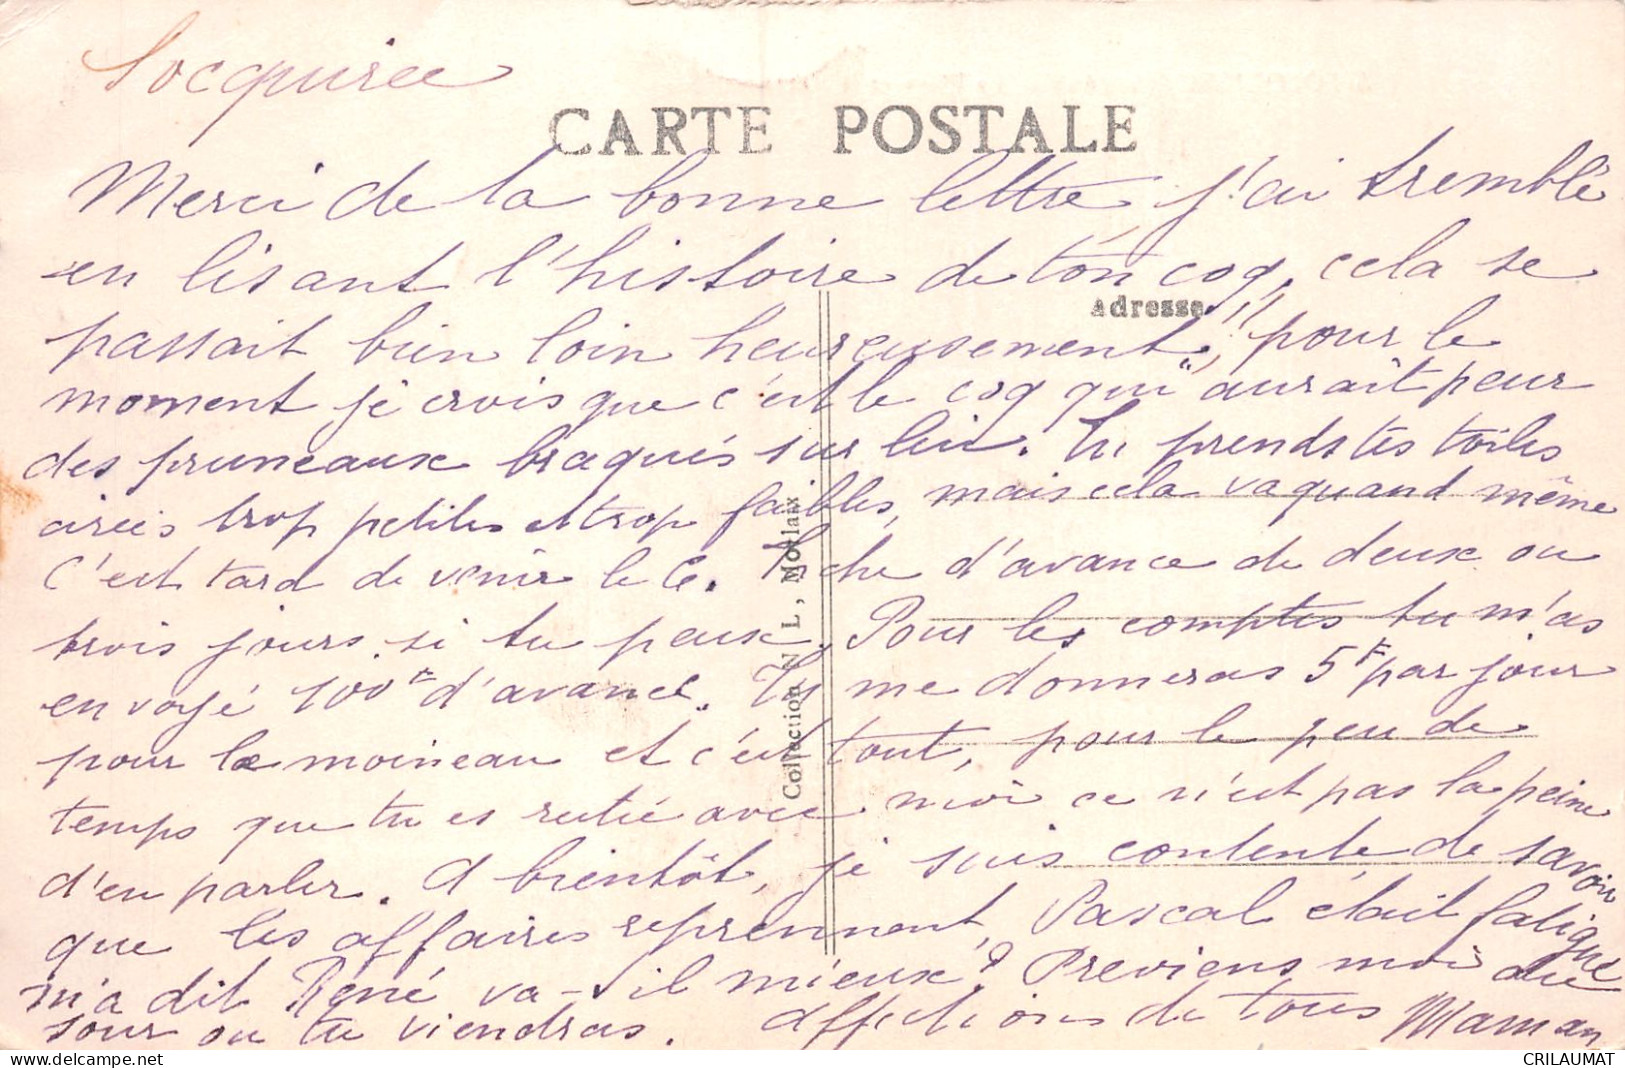 Locquirec
CARTE POSTALE
Merci de ta bonne lettre, j'ai tremblé
en lisant l'histoire de ton coq, cela se
Adresse
passait bien loin heureusement, pour le
moment je crois que c'est le coq qui aurait peur
des pruneaux braqués sur lui. Tu prends tes toiles
cirées trop petites et trop faibles, mais cela va quand même
C'est tard de venir le 6. Tâche d'avance de deux ou
trois jours si tu peux. Pour les comptes tu m'as
envoyé 100F d'avance. Tu me donneras 5F par jour
pour le moineau et c'est tout, pour le peu de
temps que tu es resté avec moi ce n'est pas la peine
d'en parler. A bientôt, je suis contente de savoir
que les affaires reprennent, Pascal était fatigué
m'a dit René va-t-il mieux? Previens moi du
jour ou tu viendras. Affections de tous Maman
Collection N L, Morlaix
CRILAUMAT